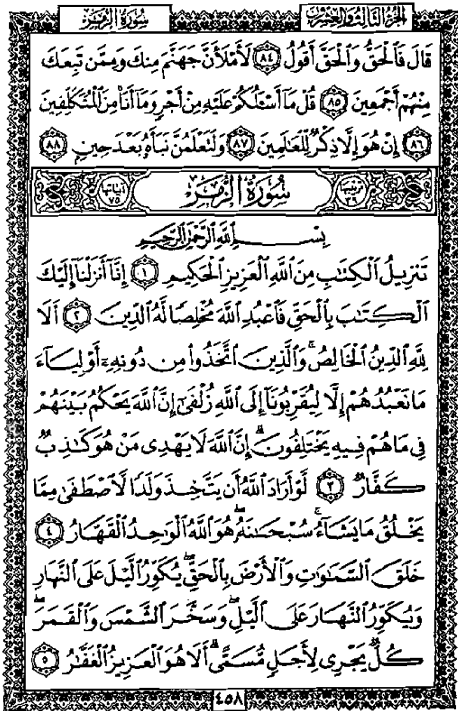 سُورَةُ الزُّمَرِ
الجُزءُ الثَّالِثُ وَالعِشرُونَ
قَالَ فَالْحَقُّ وَالْحَقَّ أَقُولُ ٨٤ لَأَمْلَأَنَّ جَهَنَّمَ مِنكَ وَمِمَّن تَبِعَكَ
مِنْهُمْ أَجْمَعِينَ ٨٥ قُلْ مَا أَسْـَٔلُكُمْ عَلَيْهِ مِنْ أَجْرٍ وَمَا أَنَا۠ مِنَ الْمُتَكَلِّفِينَ
٨٦ إِنْ هُوَ إِلَّا ذِكْرٌ لِّلْعَالَمِينَ ٨٧ وَلَتَعْلَمُنَّ نَبَأَهُ بَعْدَ حِينِۭ ٨٨
ترتيبها ٣٩ سُورَةُ الزُّمَرِ آياتها ٧٥
بِسْمِ اللَّهِ الرَّحْمَٰنِ الرَّحِيمِ
تَنزِيلُ الْكِتَٰبِ مِنَ اللَّهِ الْعَزِيزِ الْحَكِيمِ ١ إِنَّا أَنزَلْنَا إِلَيْكَ
الْكِتَٰبَ بِالْحَقِّ فَاعْبُدِ اللَّهَ مُخْلِصًا لَّهُ الدِّينَ ٢ أَلَا
لِلَّهِ الدِّينُ الْخَالِصُ ۚ وَالَّذِينَ اتَّخَذُوا مِن دُونِهِۦ أَوْلِيَاءَ
مَا نَعْبُدُهُمْ إِلَّا لِيُقَرِّبُونَا إِلَى اللَّهِ زُلْفَىٰ إِنَّ اللَّهَ يَحْكُمُ بَيْنَهُمْ
فِي مَا هُمْ فِيهِ يَخْتَلِفُونَ ۗ إِنَّ اللَّهَ لَا يَهْدِي مَنْ هُوَ كَٰذِبٌ
كَفَّارٌ ٣ لَّوْ أَرَادَ اللَّهُ أَن يَتَّخِذَ وَلَدًا لَّاصْطَفَىٰ مِمَّا
يَخْلُقُ مَا يَشَاءُ ۚ سُبْحَٰنَهُ ۖ هُوَ اللَّهُ الْوَٰحِدُ الْقَهَّارُ ٤
خَلَقَ السَّمَٰوَٰتِ وَالْأَرْضَ بِالْحَقِّ ۖ يُكَوِّرُ الَّيْلَ عَلَى النَّهَارِ
وَيُكَوِّرُ النَّهَارَ عَلَى الَّيْلِ ۖ وَسَخَّرَ الشَّمْسَ وَالْقَمَرَ ۖ
كُلٌّ يَجْرِي لِأَجَلٍ مُّسَمًّى ۗ أَلَا هُوَ الْعَزِيزُ الْغَفَّٰرُ ٥
٤٥٨